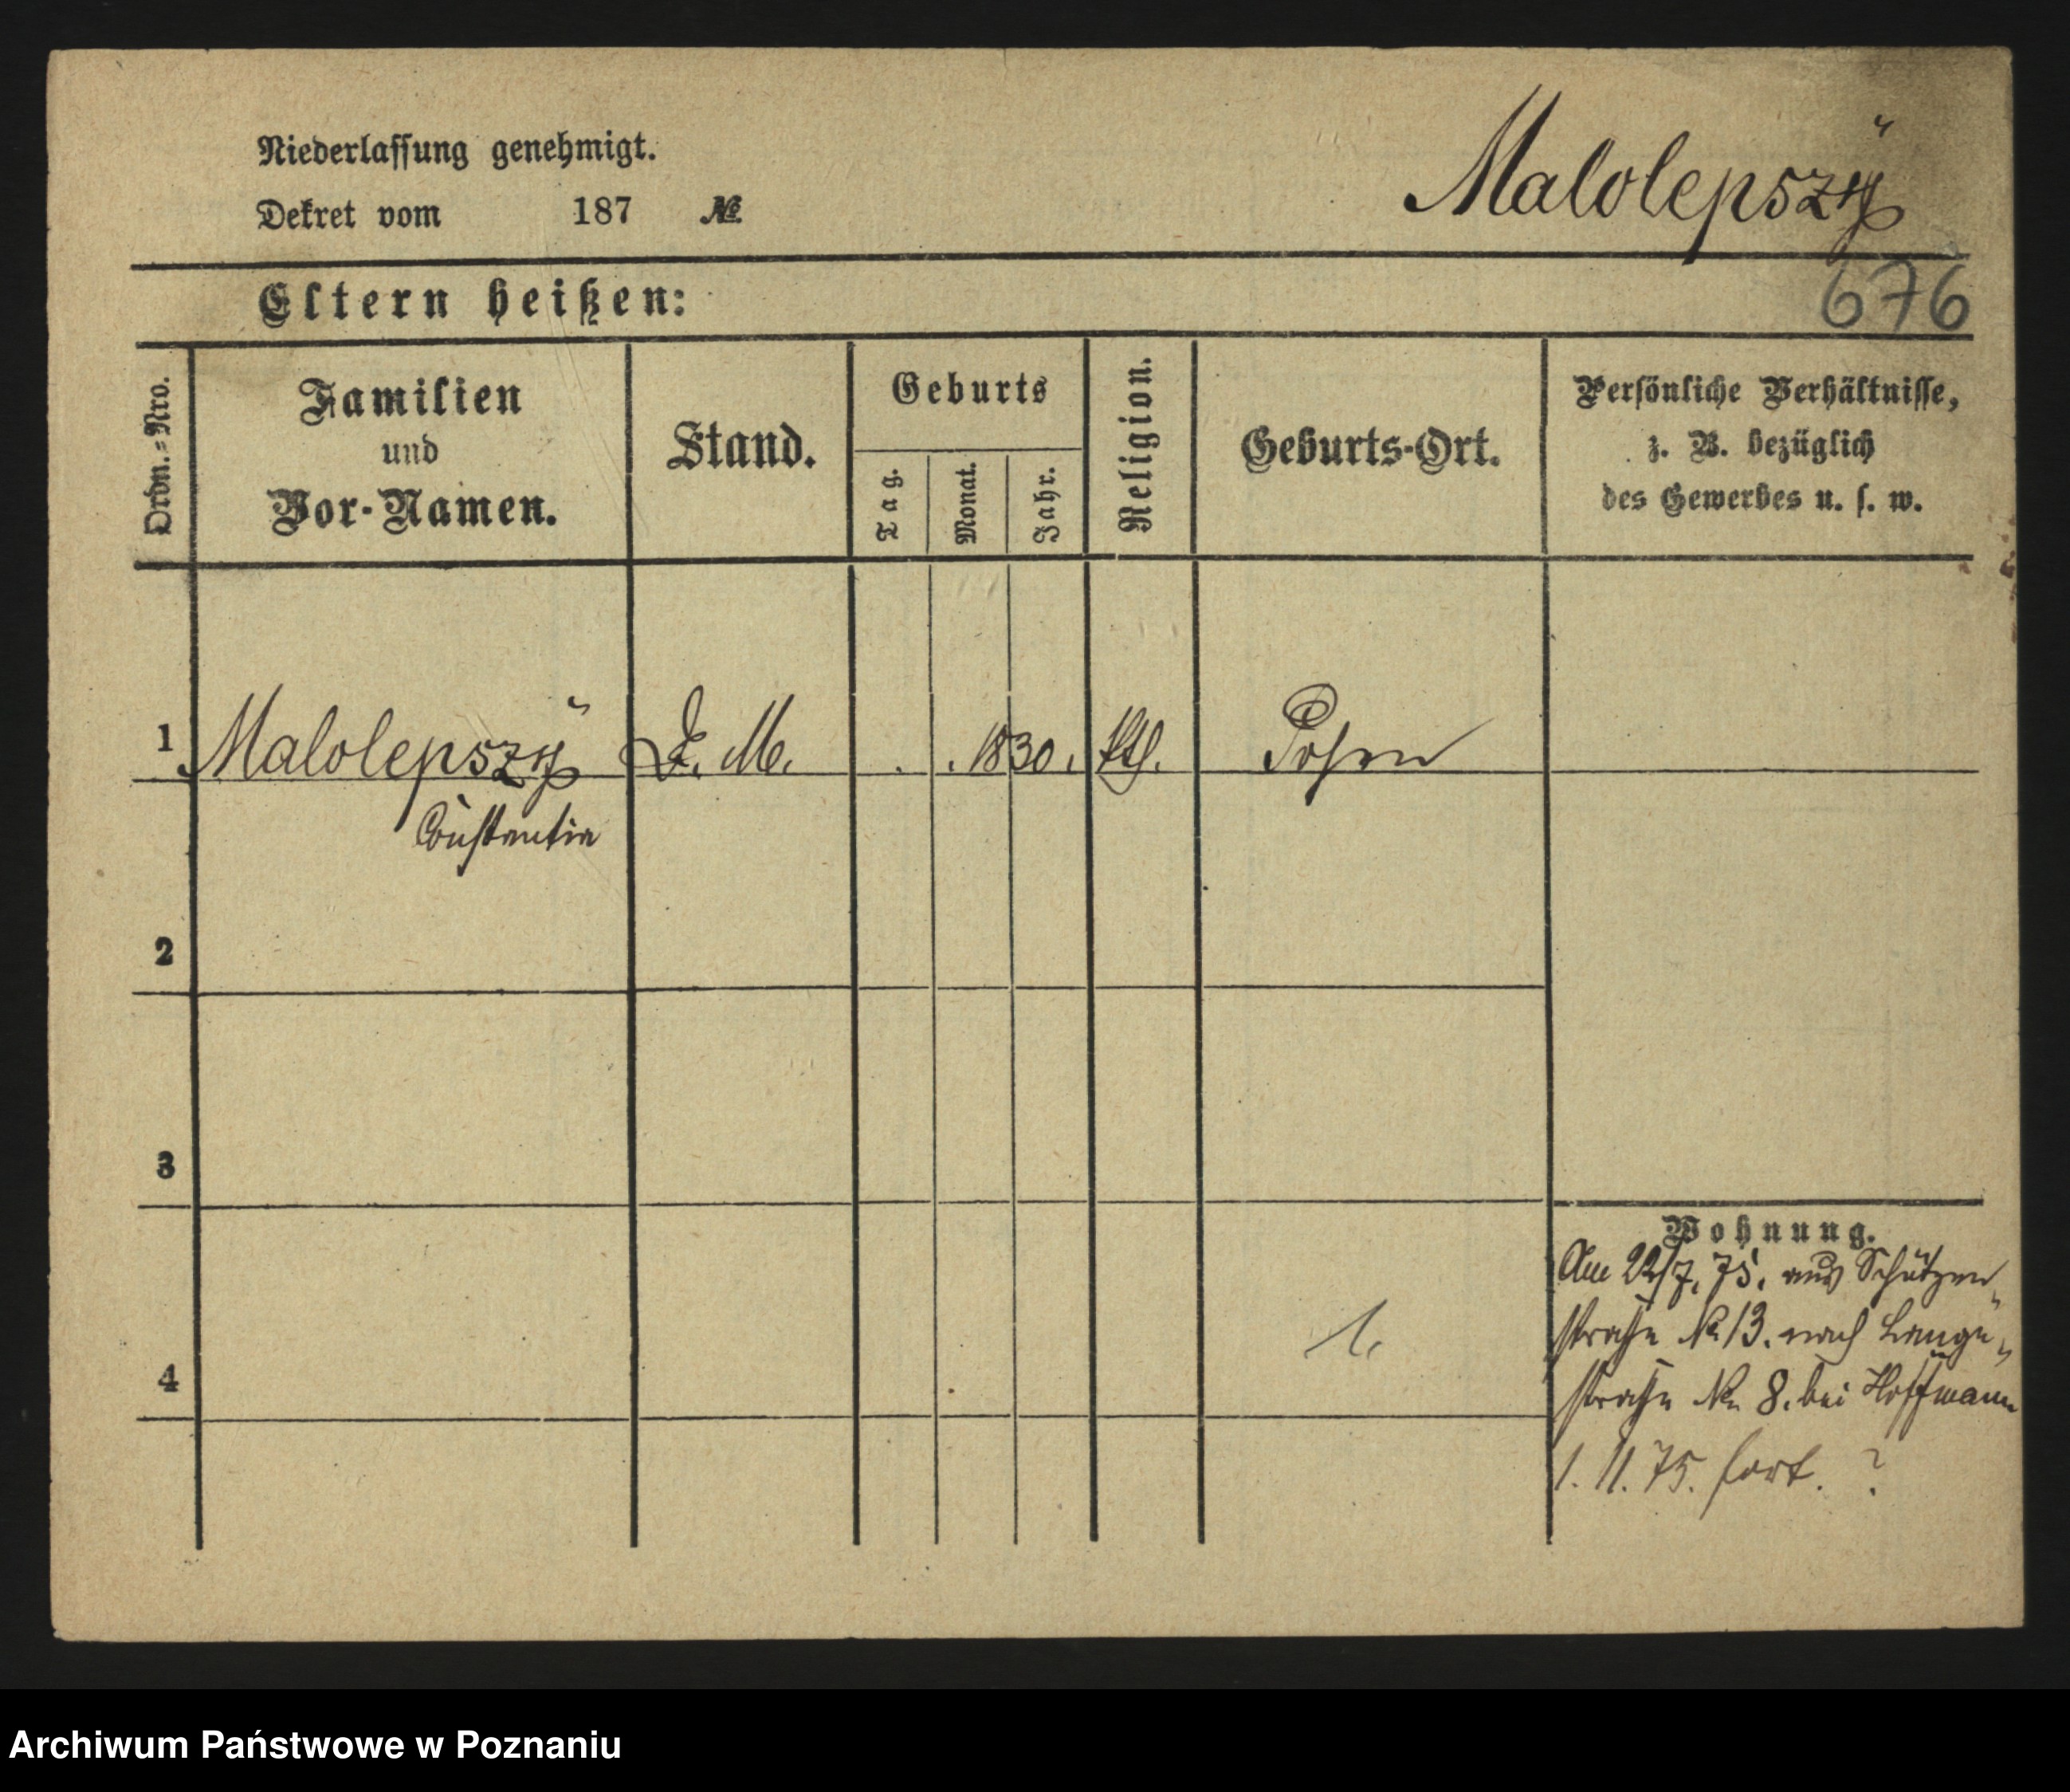 Niederlassung genehmigt.
Dekret vom 187 №
Malolepszÿ
676
Eltern heißen:
Ordn.-Nro.
Familien
und
Vor-Namen.
Stand.
Geburts
Tag.
Monat.
Jahr.
Religion.
Geburts-Ort.
Persönliche Verhältnisse,
z. B. bezüglich
des Gewerbes u. s. w.
1 Malolepszÿ D. M. . . 1830. kth. Posen
Constantia
2
3
Wohnung.
Am 22/7. 75. aus Schützen„
straße № 13. nach Lange„
4
1.
straße № 8. bei Hoffmann
1. 11. 75. fort. ?
Archiwum Państwowe w Poznaniu